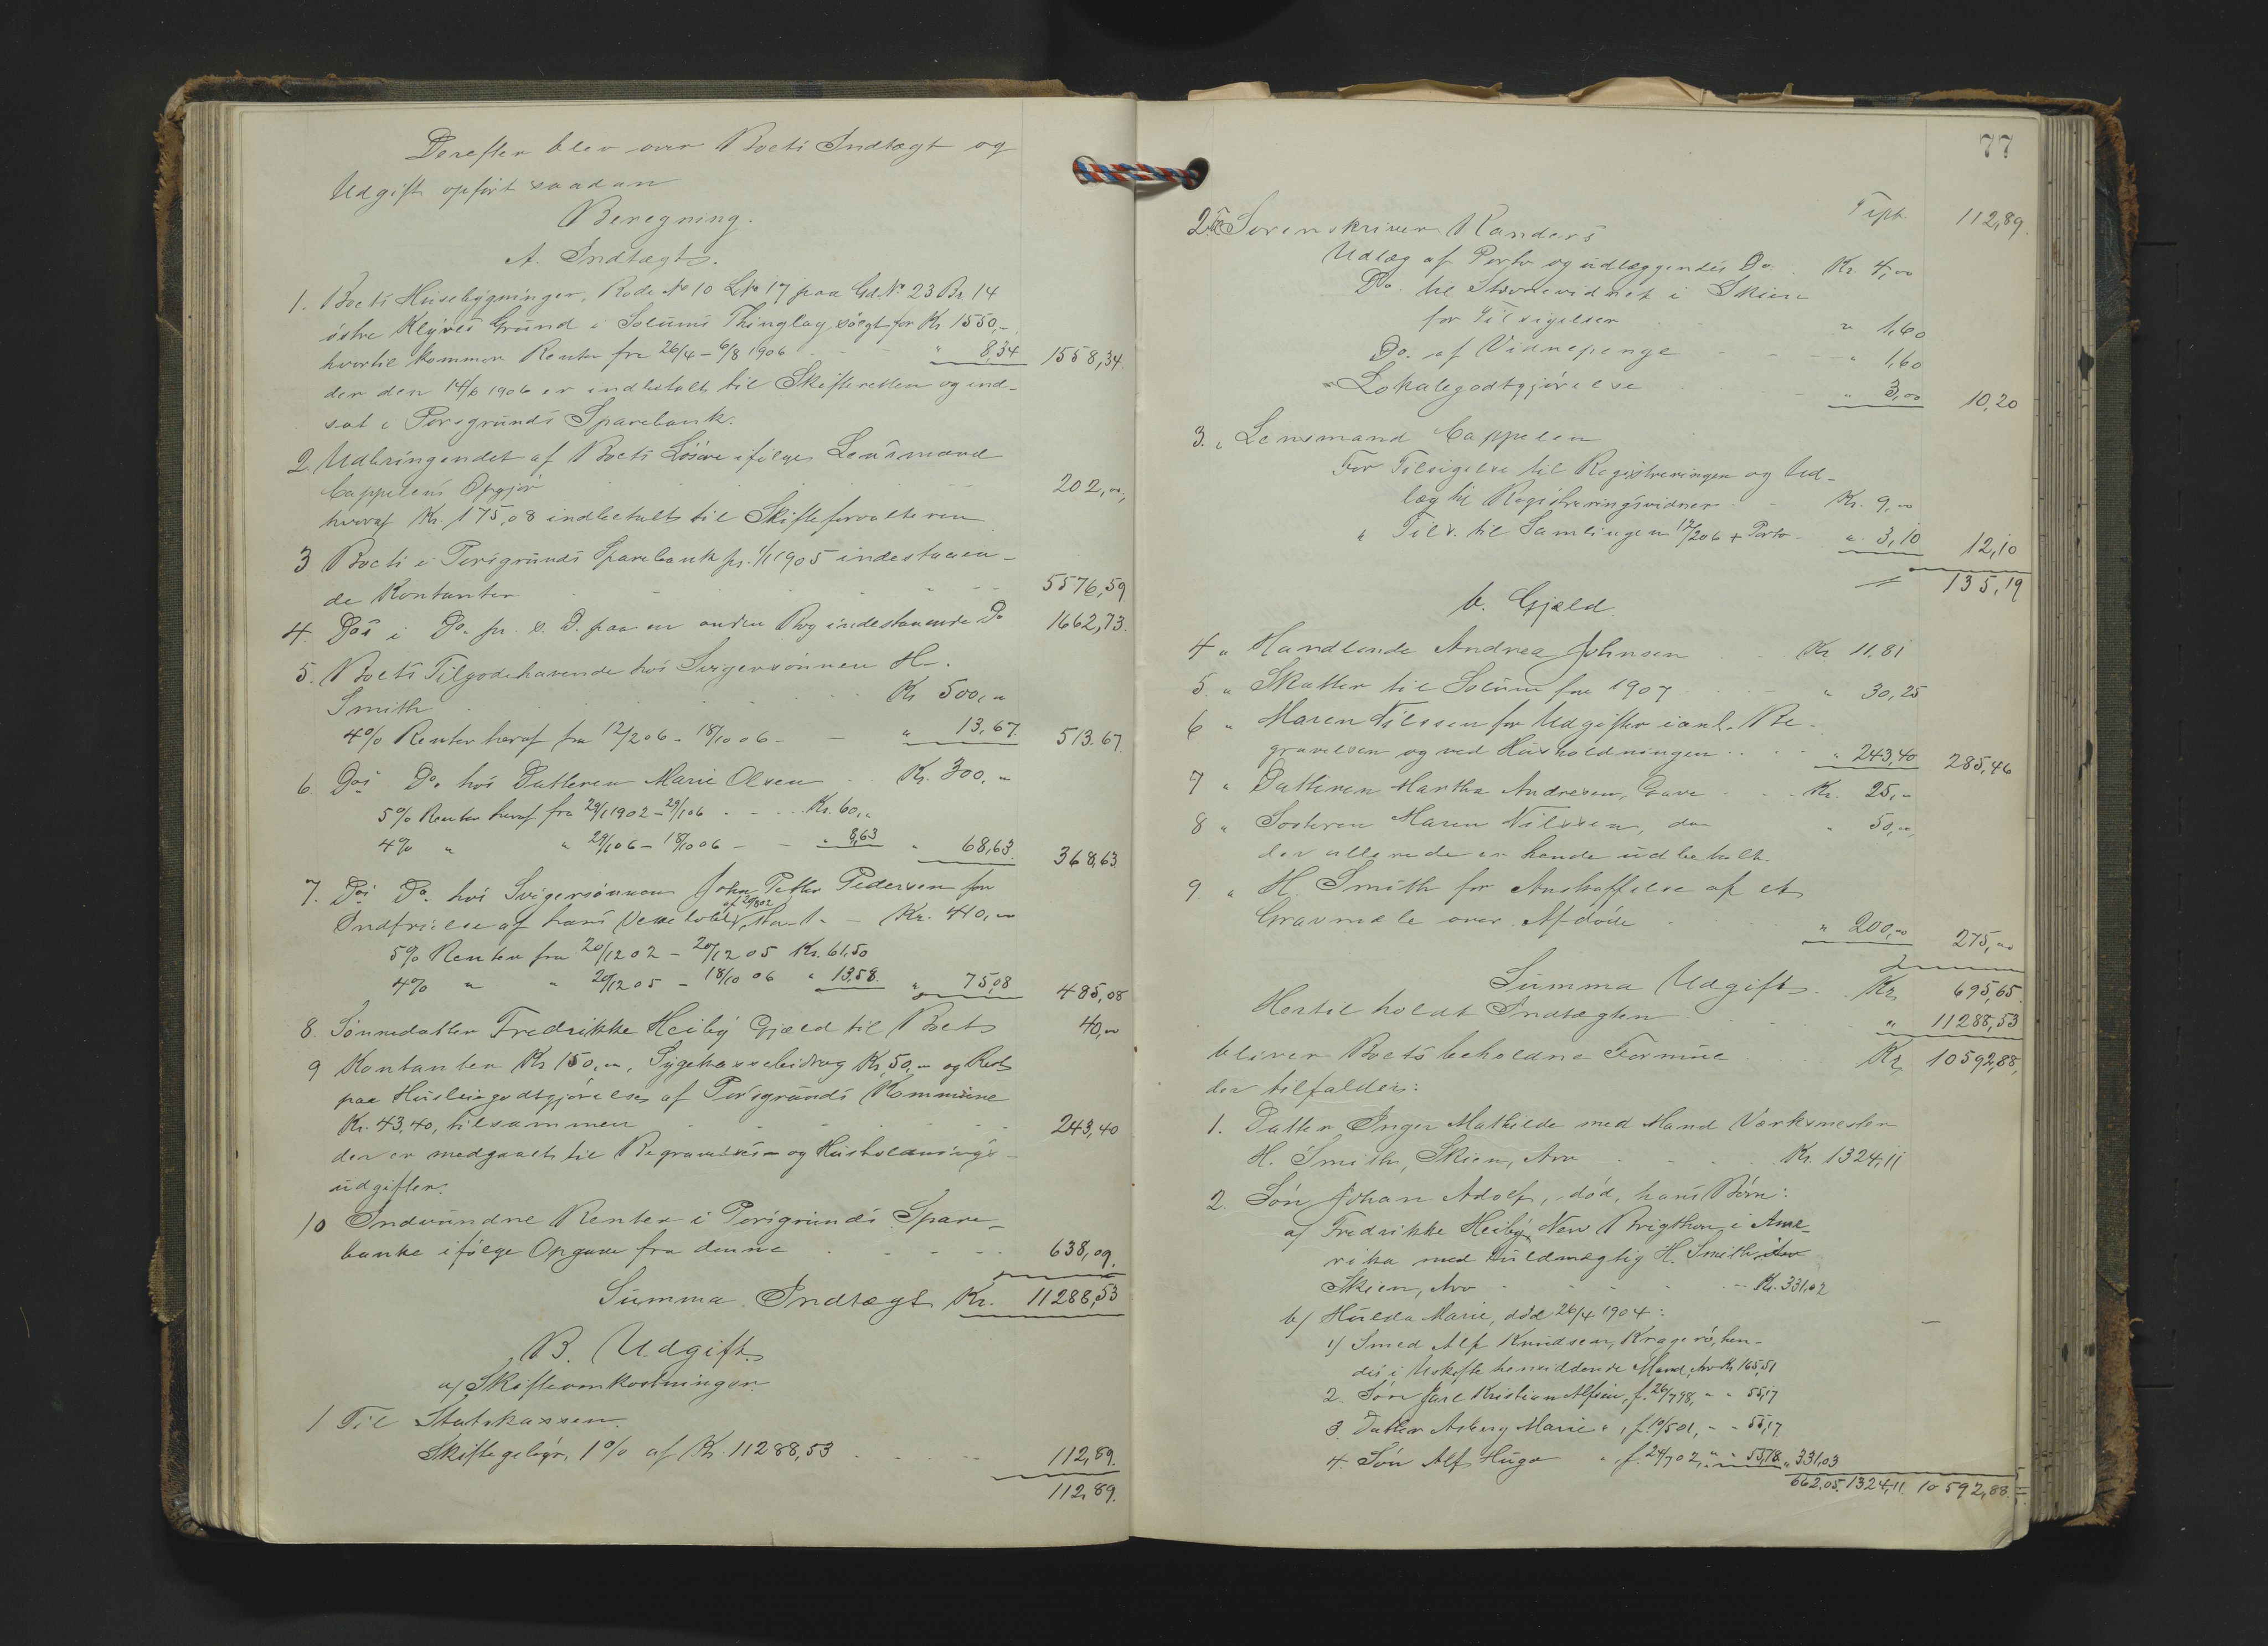 Derefter blev over Boets Indtægt og
Udgift opført saadan
Beregning.
A. Indtægt.
1. Boets Husebygninger, Rode No 10 LNo 17 paa Gd No 23 Br 14
østre Klyves Grund i Solums Thinglag, solgt for Kr. 1550,-
hvortil kommer Renter fra 26/4 - 6/8 1906 - - " 8,34 1558,34.
der den 14/6 1906 er indbetalt til Skifteretten og ind-
sat i Porsgrunds Sparebank.
2. Udbringendet af Boets Løsøre ifølge Lensmand
Cappelens Opgjør 202,00,
hvoraf Kr. 175,08 indbetalt til Skifteforvalteren
3 Boets i Porsgrunds Sparebank pr. 1/1 1905 indestaaen-
de Kontanter 5576,59
4. Do's i Do. pr. s. D. paa en anden Bog indestaaende Do 1662,73.
5. Boets Tilgodehavende hos Svigersønnen H.
Smith Kr 500,"
4% Renter heraf fra 12/2 06 - 18/10 06 - - " 13,67. 513.67.
6. Do's Do. hos Datteren Marie Olsen Kr. 300,"
5% Renter heraf fra 29/1 1902 - 29/1 06 - - Kr. 60,"
4% " " 29/1 06 - 18/10 06 - - " 8,63 " 68,63. 368,63
7. Do's Do. hos Svigersønnen John Petter Pedersen for
Indfrielse af hans Vexelobl. af 20/8 02 - Kr. 410,00
5% Renter fra 20/12 02 - 20/12 05 Kr. 61,50
4% " " 20/12 05 - 18/10 06 " 13,58. " 75,08 485,08
8. Sønnedatter Fredrikke Heiby Gjæld til Boet 40,00
9 Kontanter Kr 150,00, Sygekassebidrag Kr. 50,00 og Rest
paa Husleiegodtgjørelse af Porsgrunds Kommune
Kr. 43,40, tilsammen 243,40
der er medgaaet til Begravelses- og Husholdnings-
udgifter.
10 Indvundne Renter i Porsgrunds Spare-
banke ifølge Opgave fra denne 638,09.
Summa Indtægt Kr. 11288,53
B. Udgift.
a) Skifteomkostninger.
1 Til Statskassen.
Skiftegebyr, 1% af Kr. 11288,53 112,89.
112,89.
77
Tspt. 112,89.
2. Til Sorenskriver Randers
Udlæg af Porto og udlæggendes Do. Kr. 4,00
Do. til Stevnevidnet i Skien
for Tilsigelser " 1,60
Do. af Vidnepenge - - " 1,60
" Lokalegodtgjørelse " 3,00 10,20
3. " Lensmand Cappelen
For Tilsigelse til Registreringen og Ud-
læg til Registreringsvidner Kr. 9,00
" Tils. til Samlingen 12/2 06 + Porto - " 3,10 12,10
135,19
b. Gjæld.
4 " Handlende Andrea Johnsen Kr 11.81
5. " Skatter til Solum for 1907 " 30,25
6 " Maren Nilssen for Udgifter i anl. Be-
gravelsen og ved Husholdningen " 243,40 285,46
7 " Datteren Martha Andresen, Gave Kr. 25,"
8 " Søsteren Maren Nilssen, do " 50,00,
der allerede er hende udbetalt.
9. " H. Smith for Anskaffelse af et
Gravmæle over Afdøde " 200,00 275,00
Summa Udgift Kr. 695,65.
Hertil holdt Indtægten " 11288,53
bliver Boets beholdne Formue Kr. 10592,88,
der tilfalder:
1. Datter Inger Mathilde med Mand Værksmester
H. Smith, Skien, Arv Kr. 1324,11
2. Søn Johan Adolf, død, hans Børn:
a) Fredrikke Heiby, New Brigthon, i Ame-
rika med Fuldmægtig H. Smith
Skien, Arv - - Kr. 331,02
b) Hulda Marie, død 26/4 1904:
1) Smed Alf Knudsen, Kragerø, hen-
des i Uskifte hensiddende Mand, Arv Kr 165,51
2. Søn Jarl Kristian Alfsen, f. 26/7 98, " " 55,17
3. Datter Asberg Marie " , f. 10/5 01, - - 55,17
4. Søn Alf Hugo " , f. 24/7 02, " " 55,18. " 331,03
662,05. 1324,11. 10592,88.